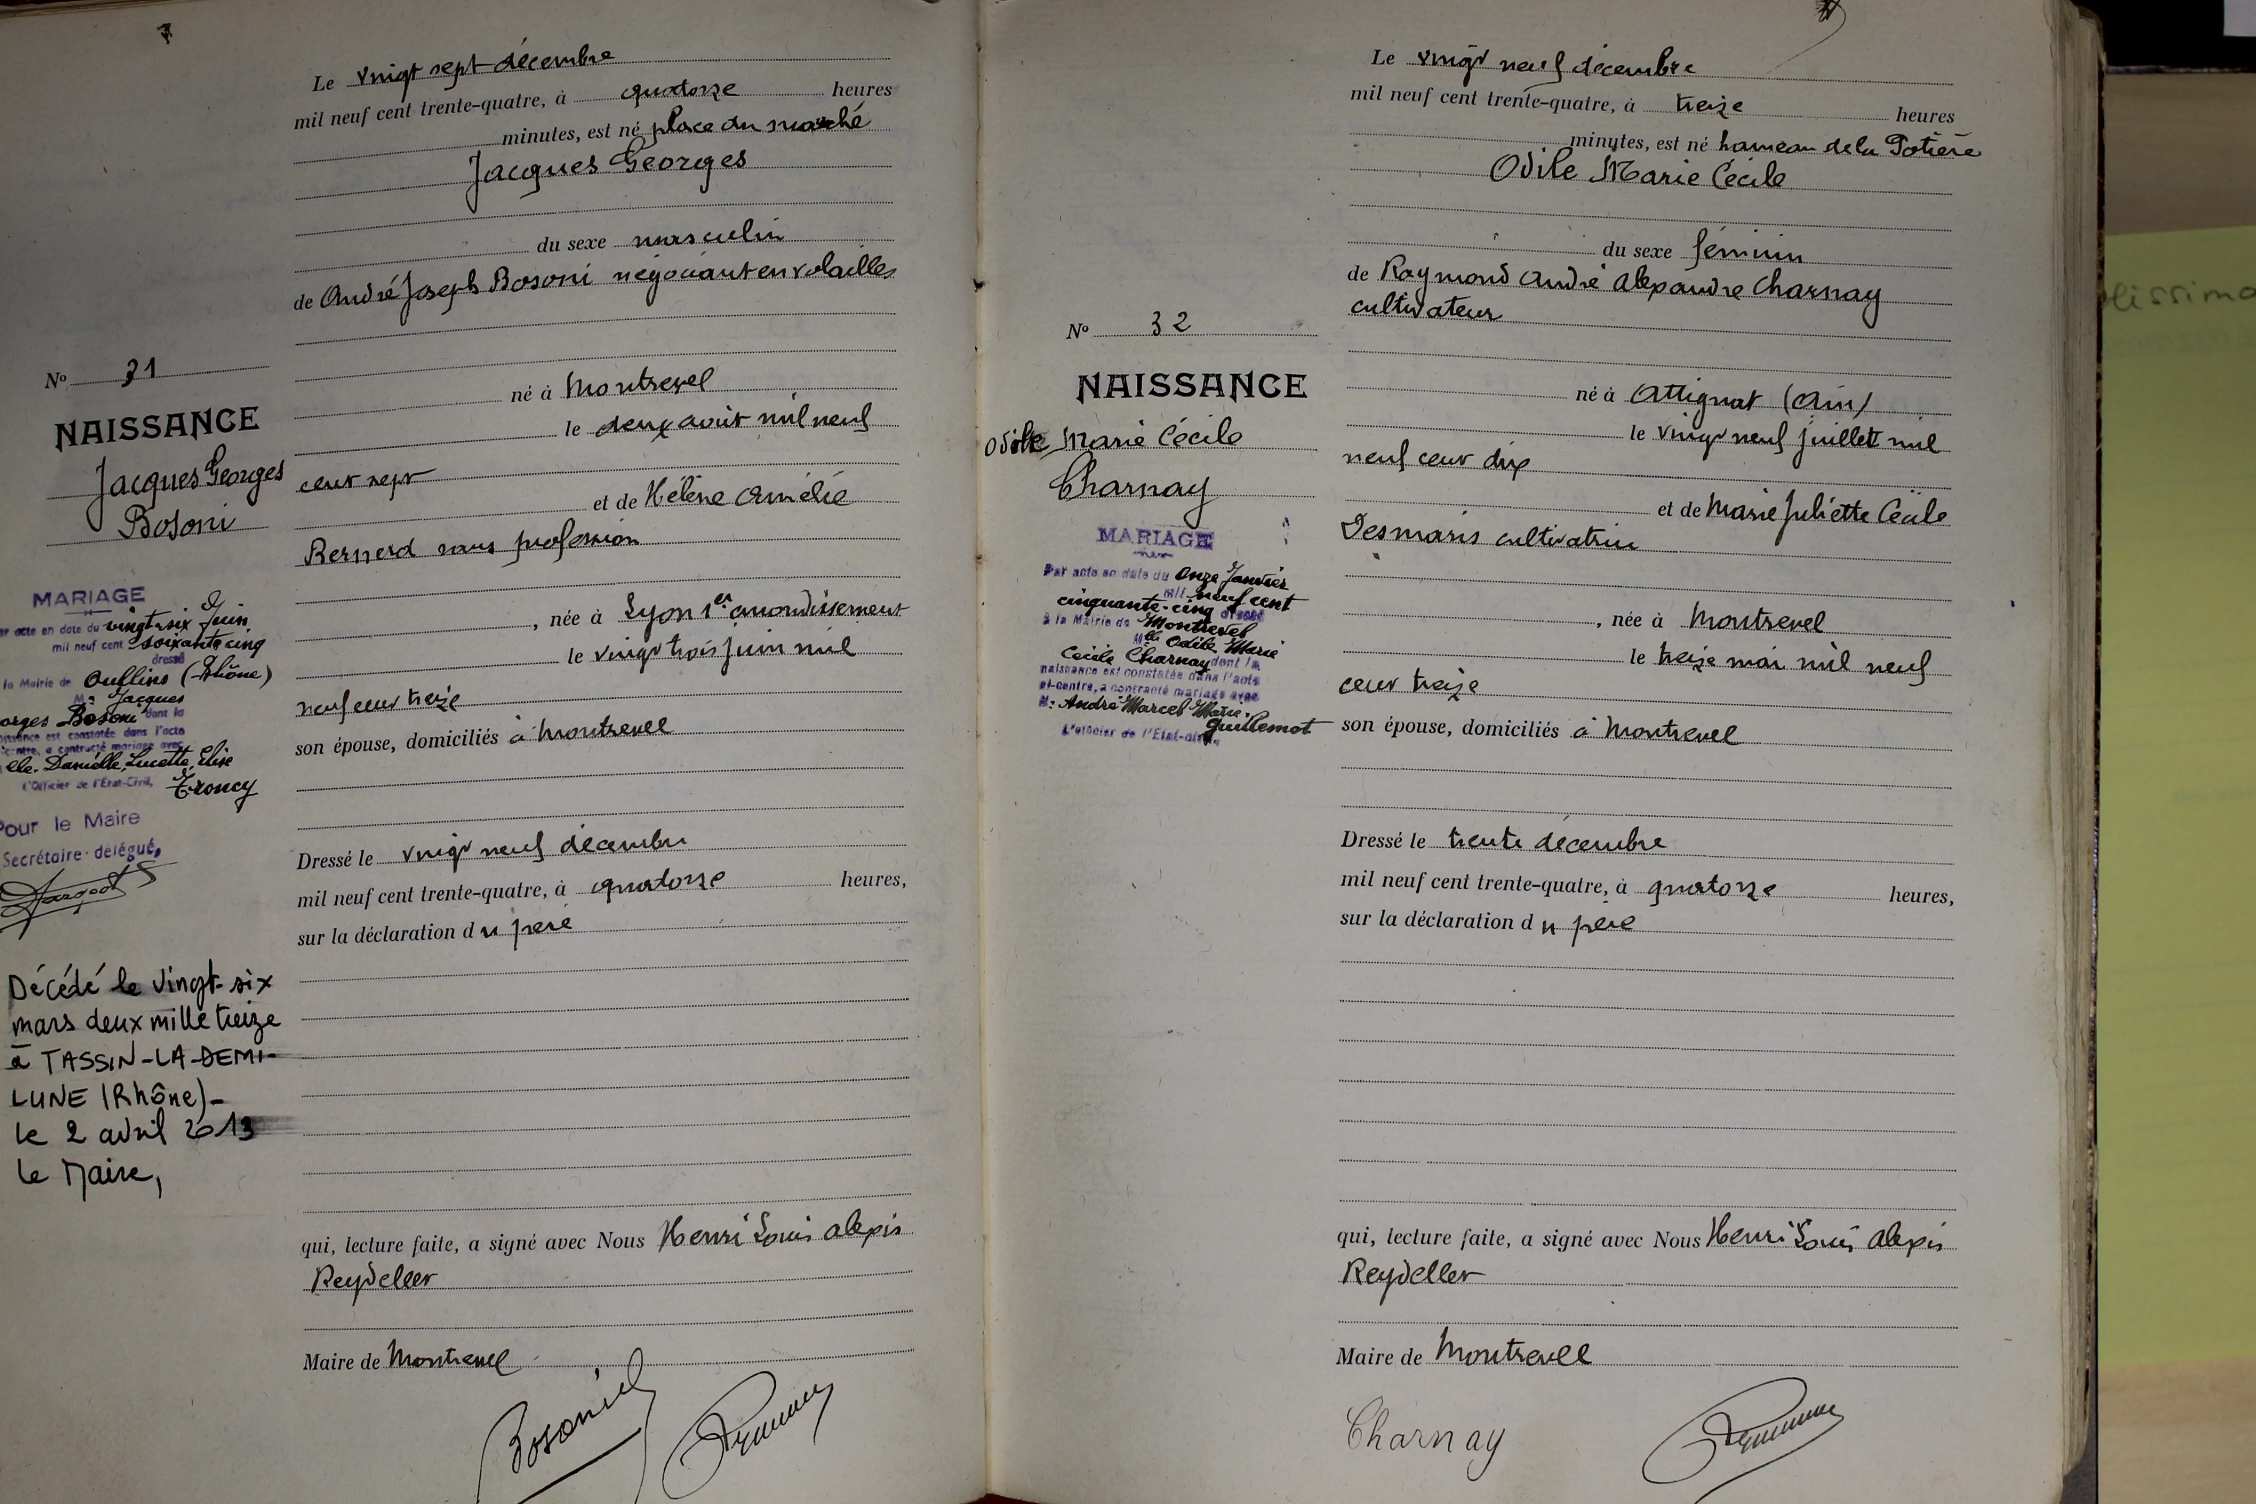 Le vingt sept décembre
mil neuf cent trente-quatre, à quatorze heures
minutes, est né place du marché
Jacques Georges
du sexe masculin
de André Joseph Bosoni négociant en volailles
né à Montrevel
le deux août mil neuf
cent sept
et de Hélène Amélie
Bernerd sans profession
, née à Lyon 1er arrondissement
le vingt trois juin mil
neuf cent treize
son épouse, domiciliés à Montrevel
Dressé le vingt neuf décembre
mil neuf cent trente-quatre, à quatorze heures,
sur la déclaration du père
qui, lecture faite, a signé avec Nous Henri Louis Alexis
Reydellet
Maire de Montrevel
Bosoni
No 31
NAISSANCE
Jacques Georges
Bosoni
MARIAGE
acte en date du vingt-six Juin
mil neuf cent soixante cinq
dressé
la Mairie de Oullins (Rhône)
M. Jacques
orges Bosoni dont la
naissance est constatée dans l'acte
contre, a contracté mariage avec
elle. Danielle, Lucette, Elise
L'Officier de l'Etat-Civil, Troncy
Pour le Maire
Secrétaire délégué,
Décédé le vingt-six
mars deux mille treize
à TASSIN-LA-DEMI-
LUNE (Rhône)-
le 2 avril 2013
le Maire,
Le vingt neuf décembre
mil neuf cent trente-quatre, à treize heures
minutes, est né hameau de la Potière
Odile Marie Cécile
du sexe féminin
de Raymond André Alexandre Charnay
cultivateur
né à Attignat (Ain)
le vingt neuf juillet mil
neuf cent dix
et de Marie Juliette Cécile
Desmaris cultivatrice
, née à Montrevel
le treize mai mil neuf
cent treize
son épouse, domiciliés à Montrevel
Dressé le trente décembre
mil neuf cent trente-quatre, à quatorze heures,
sur la déclaration du père
qui, lecture faite, a signé avec Nous Henri Louis Alexis
Reydellet
Maire de Montrevel
Charnay
No 32
NAISSANCE
Odile Marie Cécile
Charnay
MARIAGE
Par acte en date du onze Janvier
mil neuf cent
cinquante-cinq dressé
à la Mairie de Montrevel
Mlle Odile Marie
Cécile Charnay dont la
naissance est constatée dans l'acte
ci-contre, a contracté mariage avec
M. André Marcel Marie
Guillemot
L'Officier de l'Etat-civil,
lissimo